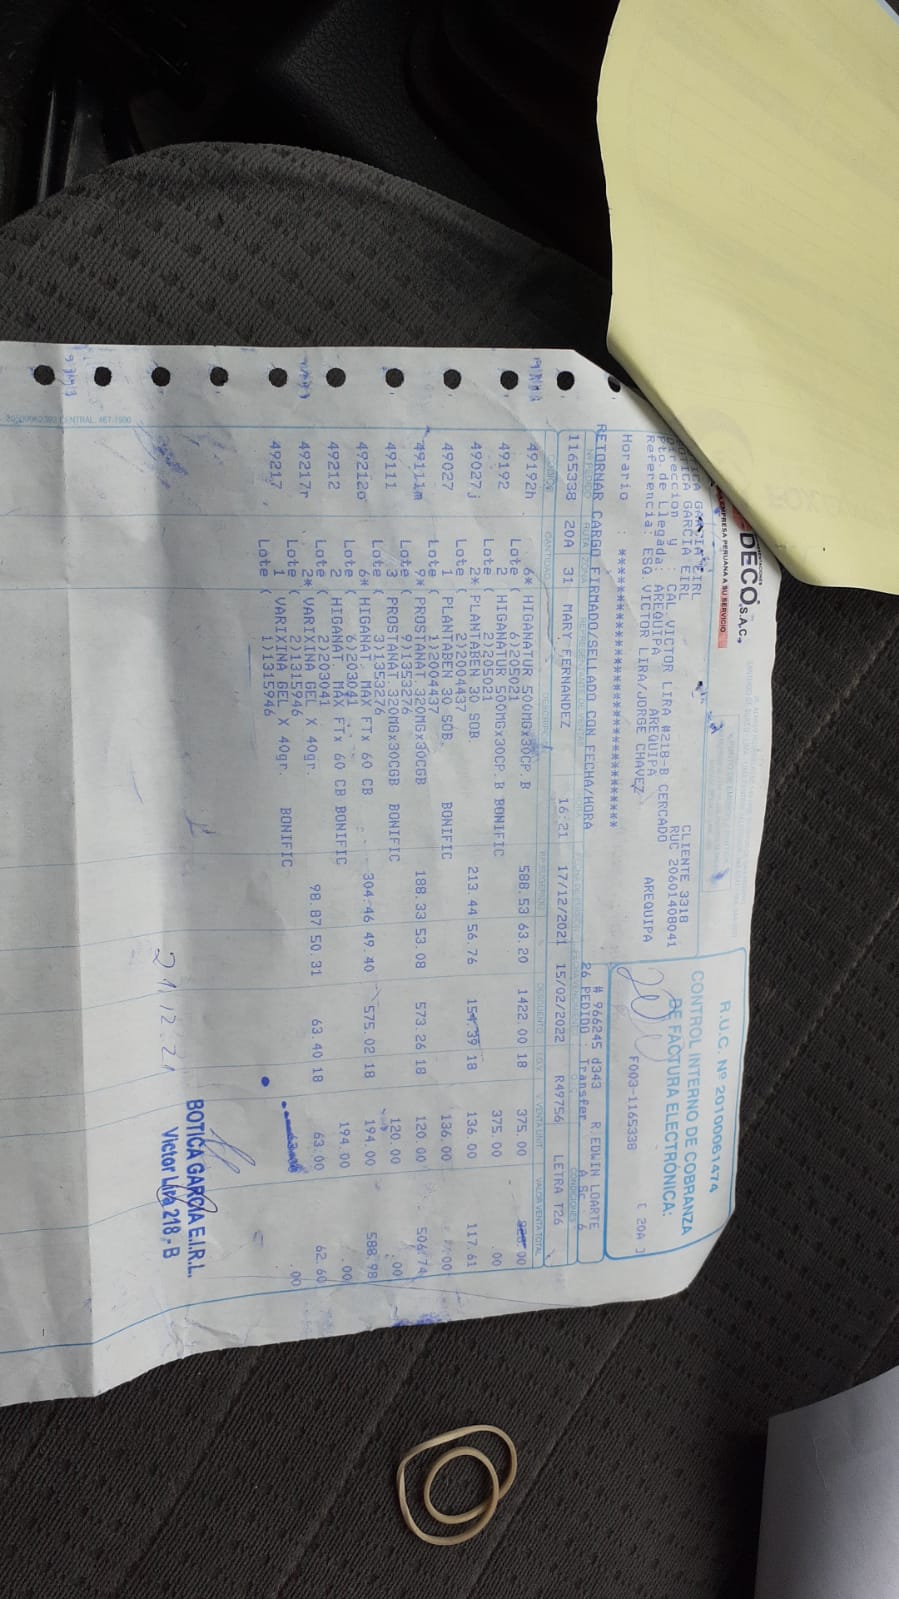 DECO S.A.C.
EMPRESA PERUANA A SU SERVICIO
R.U.C. Nº 20100061474
CONTROL INTERNO DE COBRANZA
DE FACTURA ELECTRÓNICA:
F003-1165338 E 20A J
GARCIA EIRL CLIENTE 3318
BOTICA GARCIA EIRL RUC 20601408041
Direccion y : CAL VICTOR LIRA #218-B CERCADO
Pto de Llegada: AREQUIPA AREQUIPA AREQUIPA
Referencia: ESQ VICTOR LIRA/JORGE CHAVEZ
Horario : ***************************
# 966245 d343 R EDWIN LOARTE
RETORNAR CARGO FIRMADO/SELLADO CON FECHA/HORA 26 PEDIDO : Transfer. A Sc 6
1165338 20A 31 MARY FERNANDEZ 16:21 17/12/2021 15/02/2022 R49756 LETRA T26
49192h 6* HIGANATUR 500MGx30CP. B 588.53 63.20 1422.00 18 375.00
Lote ( 6)205021
49192 2 HIGANATUR 500MGx30CP. B BONIFIC 375.00 .00
Lote ( 2)205021
49027j 2* PLANTABEN 30 SOB. 213.44 56.76 154.39 18 136.00 117.61
Lote ( 2)2004437
49027 1 PLANTABEN 30 SOB. BONIFIC 136.00 .00
Lote ( 1)2004437
49111m 9* PROSTANAT 320MGx30CGB 188.33 53.08 573.26 18 120.00 506.74
Lote ( 9)1353276
49111 3 PROSTANAT 320MGx30CGB BONIFIC 120.00 .00
Lote ( 3)1353276
49212o 6* HIGANAT MAX FTx 60 CB 304.46 49.40 575.02 18 194.00 588.98
Lote ( 6)203041
49212 2 HIGANAT MAX FTx 60 CB BONIFIC 194.00 .00
Lote ( 2)203041
49217r 2* VARIXINA GEL X 40gr. 98.87 50.31 63.40 18 63.00 62.60
Lote ( 2)1315946
49217 1 VARIXINA GEL X 40gr. BONIFIC .00
Lote ( 1)1315946
21.12.21
BOTICA GARCIA E.I.R.L.
Victor Lira 218 - B